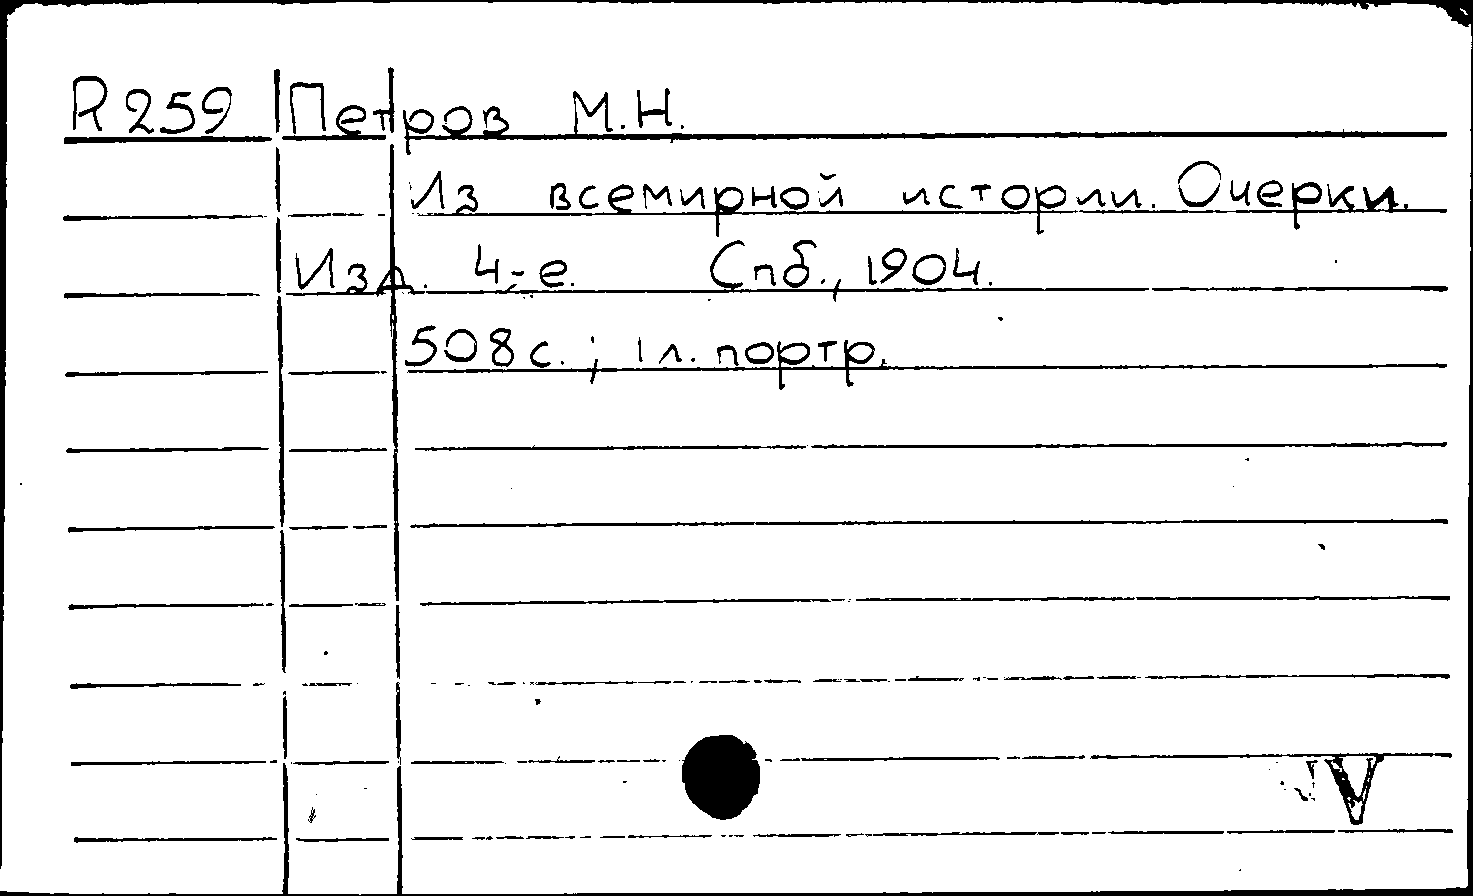 R259 Петров М.Н.
Из всемирной истории. Очерки.
Изд. 4-е. Спб., 1904.
508с.; 1л. портр.
V